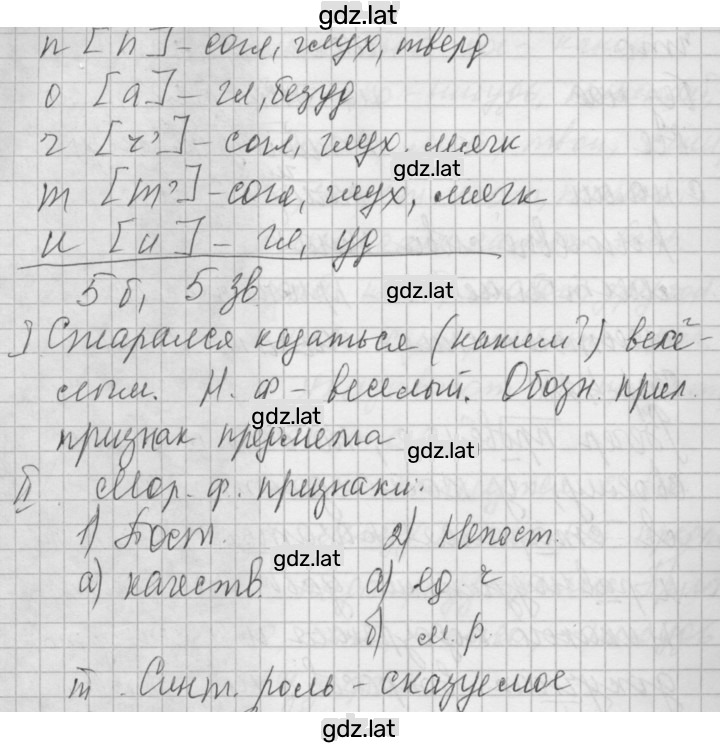 gdz.lat
п [п] – согл, глух, тверд
о [а] – гл, безуд
ч [ч’] – согл, глух. мягк
gdz.lat
т [т’] – согл, глух, мягк
и [и] – гл, уд
5 б, 5 зв
gdz.lat
I Старался казаться (каким?) весё-
лым. Н. ф – веселый. Обозн. прил.
gdz.lat
признак предмета
gdz.lat
II. Мор. ф. признаки:
1) Пост. 2) Непост.
gdz.lat
а) качеств а) ед. ч
б) м. р
III. Синт. роль – сказуемое
gdz.lat